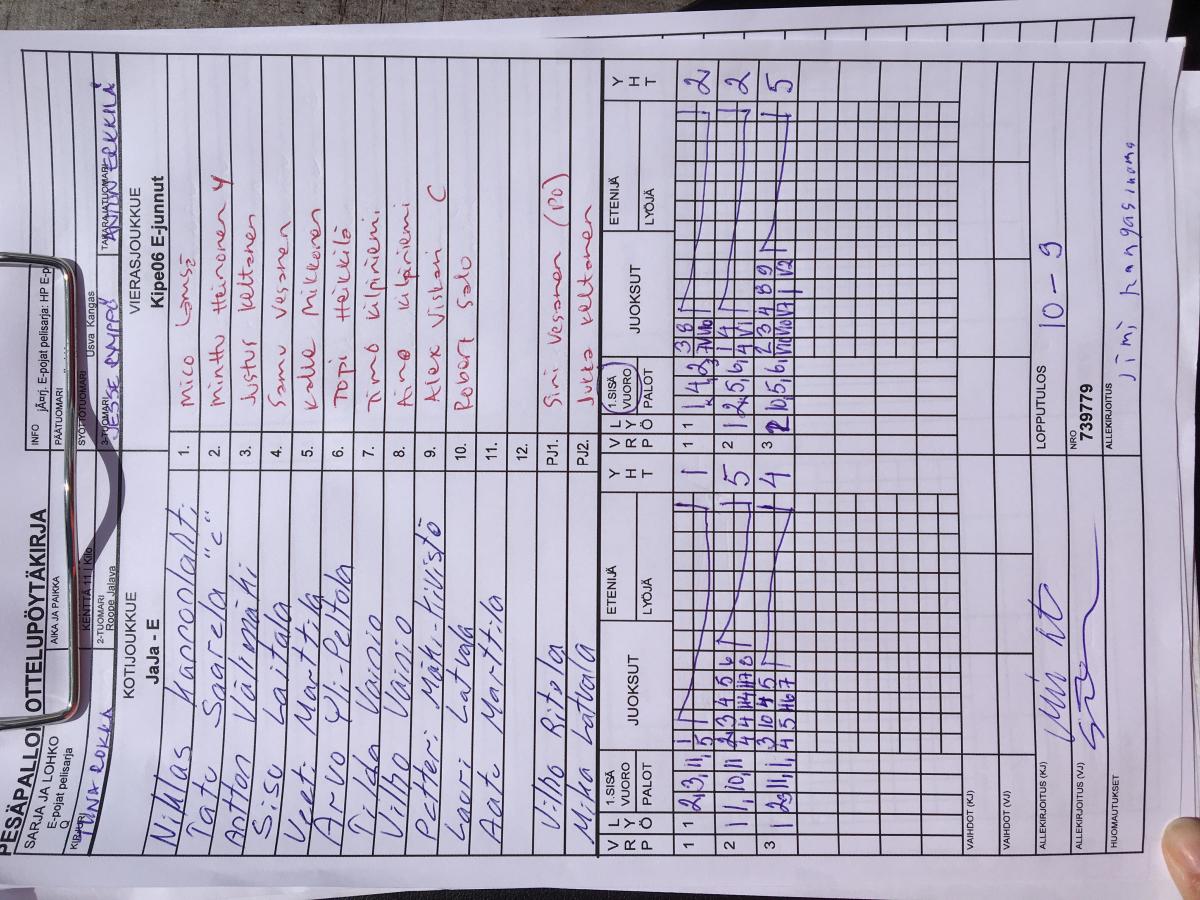 PESÄPALLON OTTELUPÖYTÄKIRJA
SARJA JA LOHKO
E-pojat pelisarja
AIKA JA PAIKKA
KENTTÄ 11 | Kilo
INFO
jÄrj. E-pojat pelisarja: HP E-p
PÄÄTUOMARI
SYÖTTÖTUOMARI
Usva Kangas
KIRJURI
2-TUOMARI
Roope Jalava
3-TUOMARI
JESSE
TAKARAJATUOMARI
ANTON ERKKILÄ
KOTIJOUKKUE
JaJa - E
VIERASJOUKKUE
Kipe06 E-junnut
Niklas 1. Mico
Tatu Saarela "C" 2. Minttu Heinonen Y
Anttan Välimäki 3. Justus Keltanen
Sisu Laitala 4. Samu Vesanen
Veeti Martila 5. Kalle Mikkonen
Arvo Yli-Peltola 6. Topi Heikkilä
Tilda Vainio 7. Timo Kilpiniemi
Vilho Vainio 8. Aino Kilpiniemi
Petteri Mäki-Kivistö 9. Alex Viskari C
Lauri Latvala 10. Robert Salo
Aatu Martila 11.
12.
Vilho Ritola PJ1. Sini Vesanen (PO)
Mika Latvala PJ2. Jukka Keltanen
V R P L Y Ö 1.SISÄ VUORO PALOT JUOKSUT ETENIJÄ LYÖJÄ Y H T V R P L Y Ö 1.SISÄ VUORO PALOT JUOKSUT ETENIJÄ LYÖJÄ Y H T
1 1 2, 3, 11, 1 1 1 1 1, 4, 2, 3 8 2
5
2 1 1, 10, 11 2 3 4 5 6 5 2 1 2, 5, 6, 1 4 2
3 1 3 10 4 5 4 3 2 10, 5, 6, 2 3 4 8 9 5
4 5 H6 7
VAIHDOT (KJ)
VAIHDOT (VJ)
ALLEKIRJOITUS (KJ)
LOPPUTULOS 10 - 9
ALLEKIRJOITUS (VJ)
NRO
739779
HUOMAUTUKSET
ALLEKIRJOITUS
jimi kangasniemi